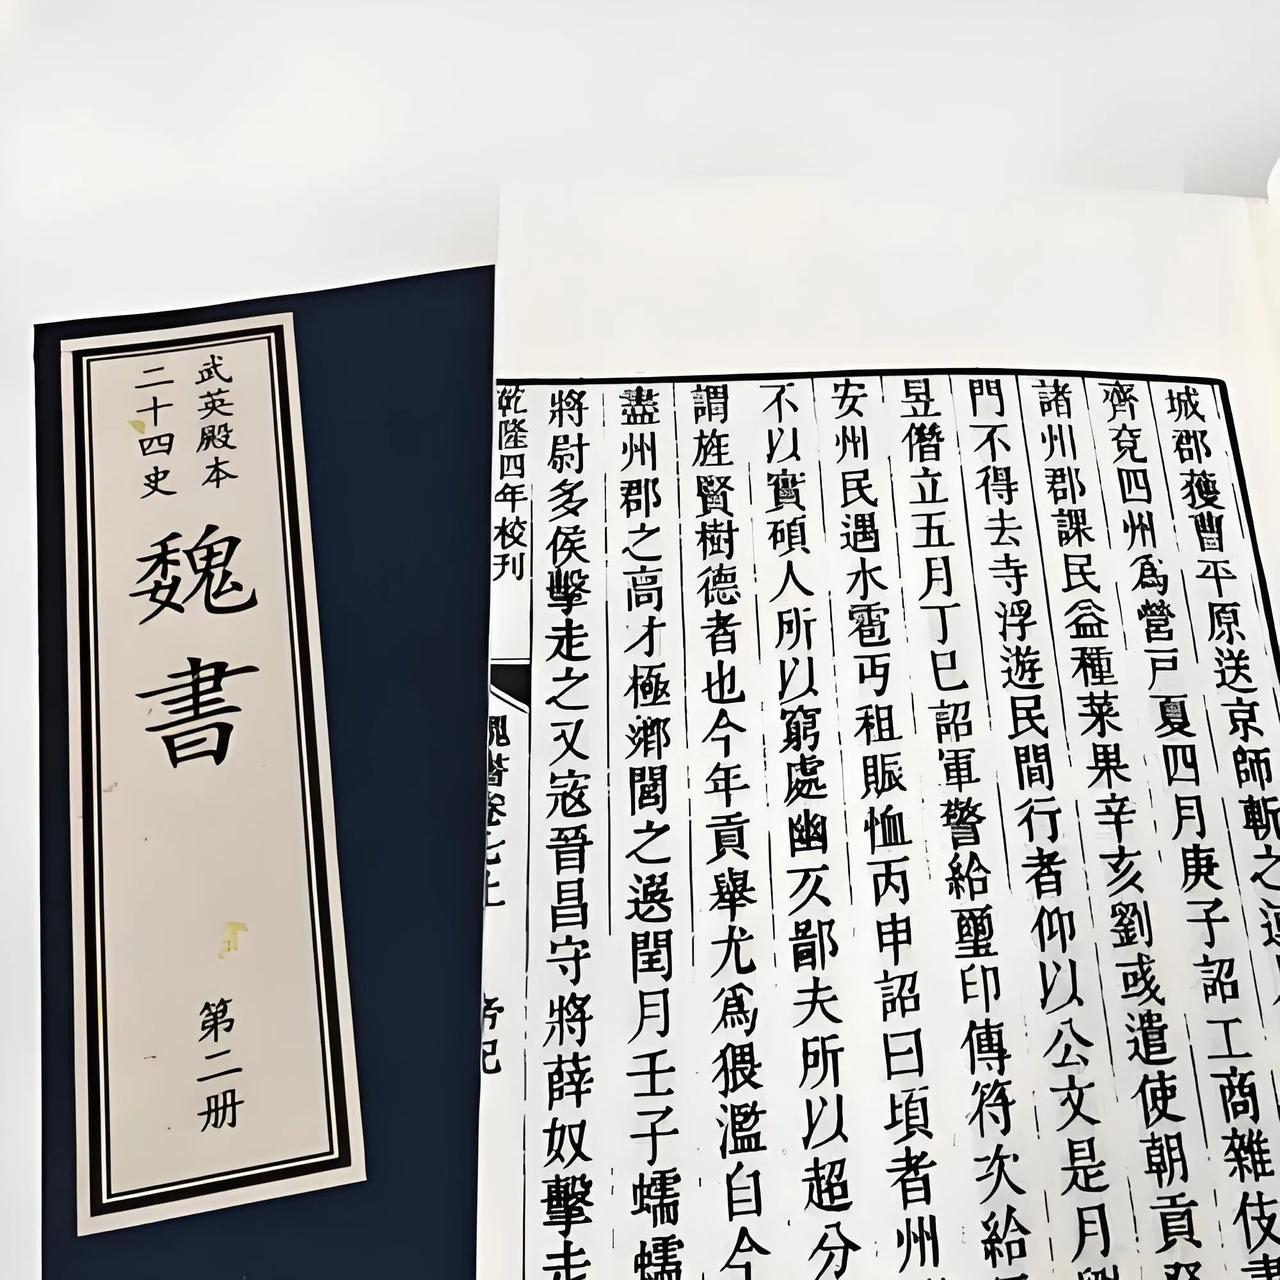 武英殿本
二十四史
魏書
第二册
城郡獲曹平原送京師斬之
齊兗四州爲營戸夏四月庚子詔工商雜伎
諸州郡課民益種菜果辛亥劉彧遣使朝貢
門不得去寺浮遊民間行者仰以公文是月
昱僭立五月丁巳詔軍警給璽印傳符次給
安州民遇水雹丐租賑恤丙申詔曰頃者州
不以實碩人所以窮處幽仄鄙夫所以超分
謂旌賢樹德者也今年貢舉尤爲猥濫自今
盡州郡之高才極鄉閭之選閏月壬子蠕蠕
將尉多侯擊走之又寇晉昌守將薛奴擊走
乾隆四年校刊
魏書卷七上
帝紀